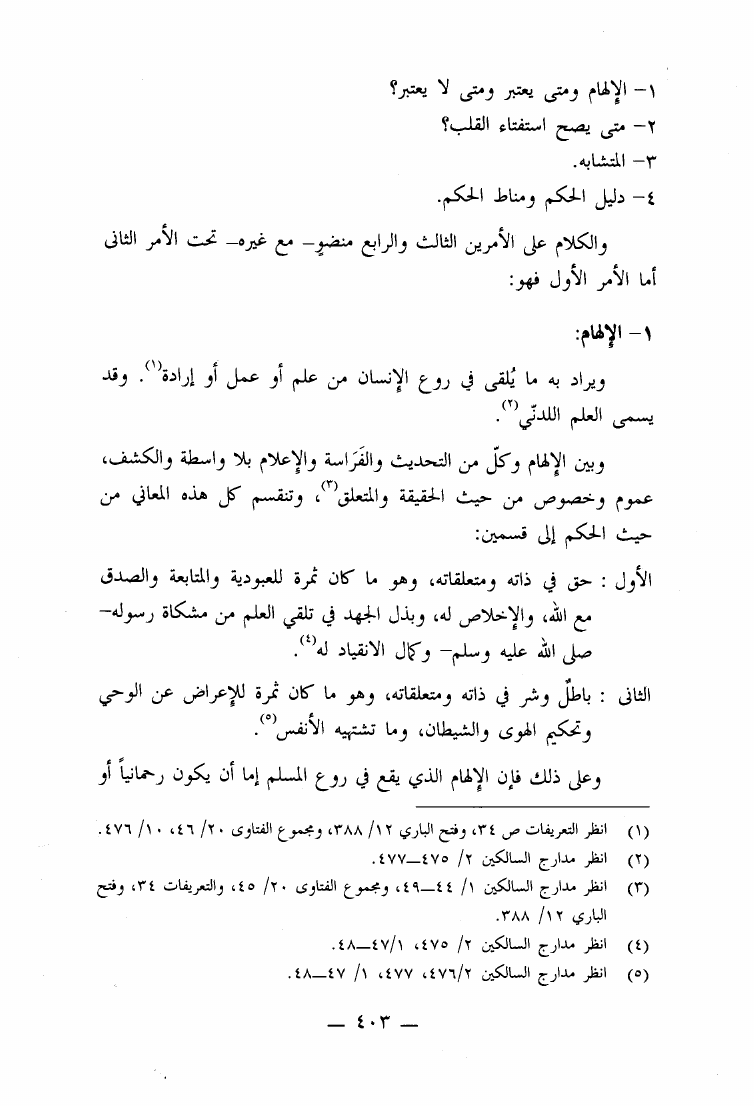 ١- الإلهام ومتى يعتبر ومتى لا يعتبر؟
٢- متى يصح استفتاء القلب؟
٣- المتشابه.
٤- دليل الحكم ومناط الحكم.
والكلام على الأمرين الثالث والرابع منضوٍ- مع غيره- تحت الأمر الثانى
أما الأمر الأول فهو:
١- الإلهام:
ويراد به ما يُلقى في روع الإنسان من علم أو عمل أو إرادة(١). وقد
يسمى العلم اللدنّي(٢).
وبين الإلهام وكلّ من التحديث والفَراسة والإعلام بلا واسطة والكشف،
عموم وخصوص من حيث الحقيقة والمتعلق(٣)، وتنقسم كل هذه المعاني من
حيث الحكم إلى قسمين:
الأول : حق في ذاته ومتعلقاته، وهو ما كان ثمرة للعبودية والمتابعة والصدق
مع الله، والإخلاص له، وبذل الجهد في تلقي العلم من مشكاة رسوله-
صلى الله عليه وسلم- وكمال الانقياد له(٤).
الثانى : باطلٌ وشر في ذاته ومتعلقاته، وهو ما كان ثمرة للإعراض عن الوحي
وتحكيم الهوى والشيطان، وما تشتهيه الأنفس(٥).
وعلى ذلك فإن الإلهام الذي يقع في روع المسلم إما أن يكون رحمانياً أو
(١) انظر التعريفات ص ٣٤، وفتح الباري ١٢/ ٣٨٨، ومجموع الفتاوى ٢٠/ ٤٦، ١٠/ ٤٧٦.
(٢) انظر مدارج السالكين ٢/ ٤٧٥—٤٧٧.
(٣) انظر مدارج السالكين ١/ ٤٤—٤٩، ومجموع الفتاوى ٢٠/ ٤٥، والتعريفات ٣٤، وفتح
الباري ١٢/ ٣٨٨.
(٤) انظر مدارج السالكين ٢/ ٤٧٥، ١/٤٧—٤٨.
(٥) انظر مدارج السالكين ٢/٤٧٦، ٤٧٧، ١/ ٤٧—٤٨.
— ٤٠٣ —